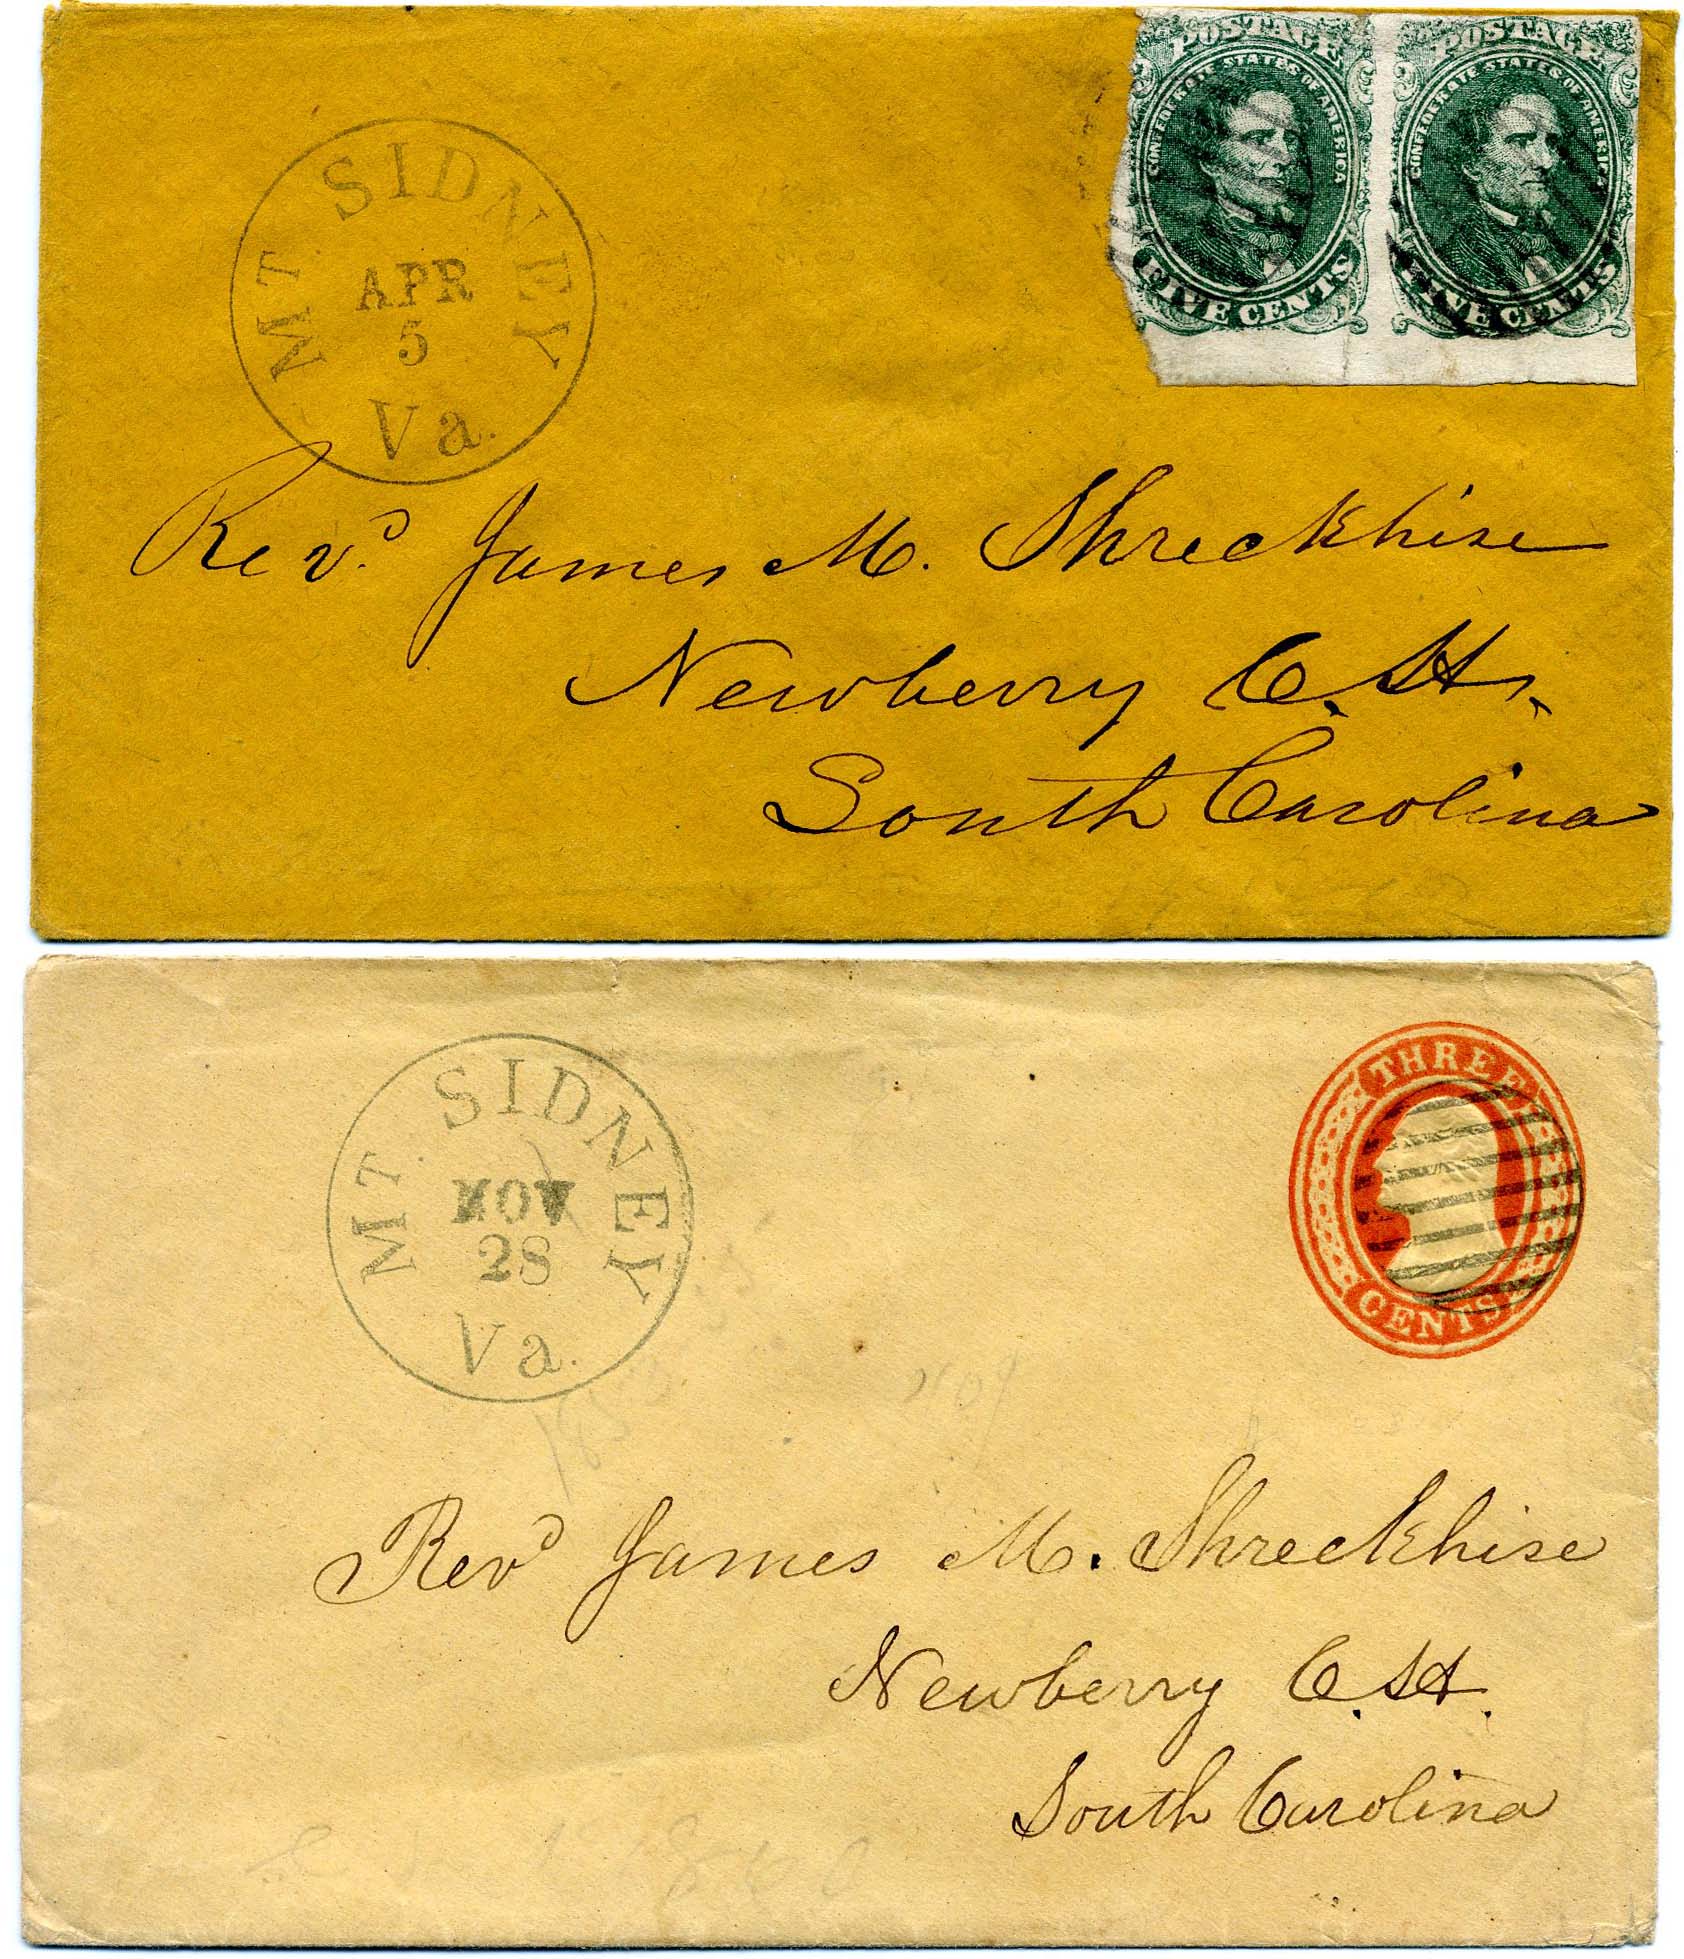 POSTAGE POSTAGE
CONFEDERATE STATES OF AMERICA CONFEDERATE STATES OF AMERICA
FIVE CENTS FIVE CENTS
MT. SIDNEY
APR
5
Va.
Revd. James M. Shreckhise
Newberry C. H.
South Carolina
THREE
CENTS
MT. SIDNEY
NOV
28
Va.
Revd James M. Shreckhise
Newberry C. H.
South Carolina